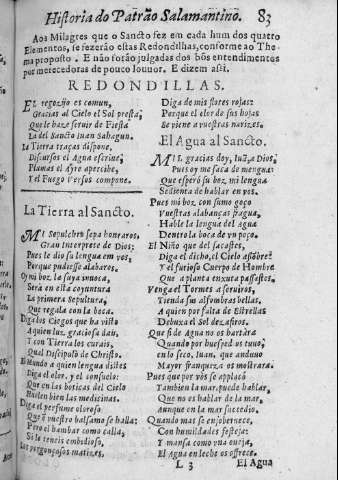 Historia do Patrão Salamantino. 83
Aos Milagres que o Sancto fez em cada hum dos quatro
Elementos, se fezerão estas Redondilhas, conforme ao The
ma proposto. E não forão julgadas dos bõs entendimentos
por merecedoras de pouco louvor. E dizem assi.
REDONDILLAS.
EL regozijo es comun,
Gracias al Cielo el Sol presta,
Que le haze seruir de Fiesta
La del Sancto Iuan Sahagun.
La Tierra traças dispone,
Discursos el Agua escriue,
Plumas el Ayre apercibe,
Y el Fuego Versos compone.
La Tierra al Sancto.
MI Sepulchro sepa honraros,
Gran Interprete de Dios;
Pues le dio su lengua em vos,
Porque pudiesse alabaros.
Oy mi boz. la suya inuoca,
Será en esta conyuntura
La primera Sepultura,
Que regala con la boca.
Diga los Ciegos que ha visto
A quien luz. graciosa dan,
Y con Tierra los curais,
Qual Discipolo de Christo.
El Mundo a quien lengua distes
Diga el olor, y el consuelo:
Que en las boticas del Cielo
Huelen bien las medicinas.
Diga el perfume oloroso
Que à vuestro balsamo se halla:
Pero el hambar como calla,
Si le teneis embidioso,
Los vergonçosos matizes,
Diga de mis flores rojas:
Porque el olor de sus hojas
Se viene a vuestras narizes.
El Agua al Sancto.
MIL gracias doy, Iuã, a Dios,
Pues oy me saca de menguas
Que esperó su boz, mi lengua
Sedienta de hablar en vos.
Pues mi boz con sumo goço
Vuestras alabanças fragua,
Hable la lengua del Agua
Dentro la boca de vn poço.
El Niño que del sacastes,
Diga el dicho, el Cielo assõbre:
Y el furioso Cuerpo de Hombre
Que a planta enxuta passastes,
Venga el Tormes a seruiros,
Tienda sus alfombras bellas,
A quien por falta de Estrellas
Debuxa el Sol de zafiros.
Que si de Agua no os hartára
Quando por huesped os tuuo,
en lo seco, Iuan, que anduuo
Mayor franqueza os mostrara.
Pues que por vòs se applacó
Tambien la mar, puede hablar,
Que no es hablar de la mar
Aunque en la mar succedio.
Quando mas se ensoberuece,
Con humildades festeja:
Y mansa como vna oueja,
El Agua en leche os offrece.
L 3 El Agua